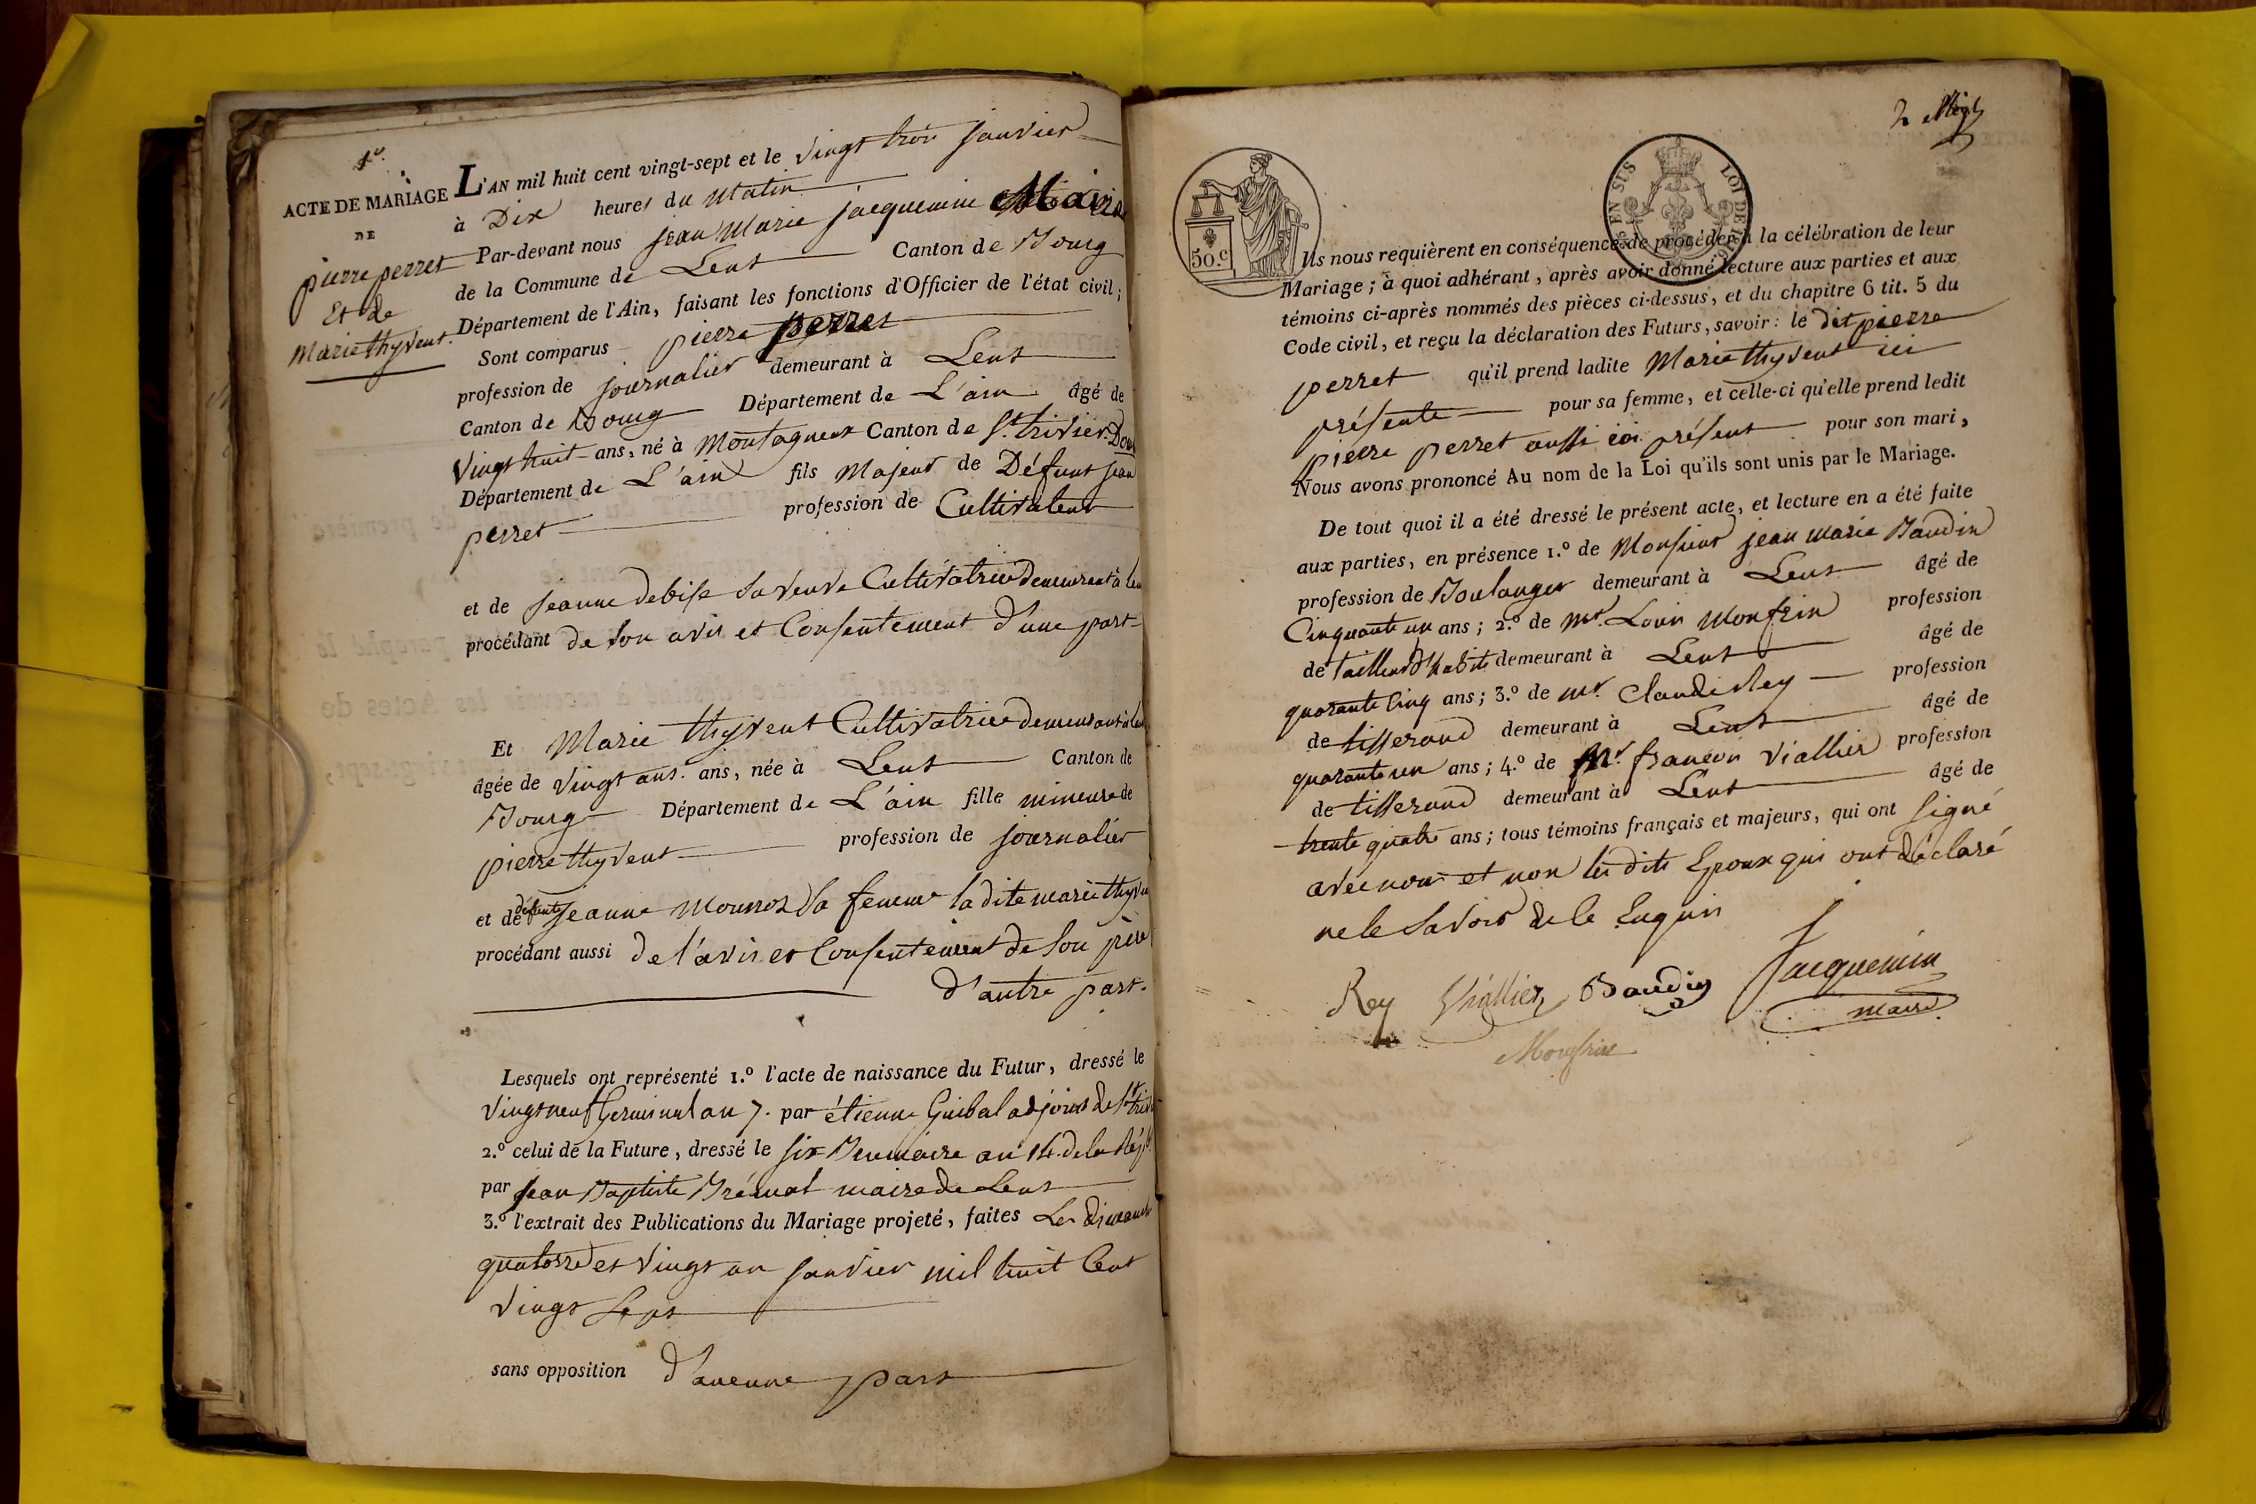 1er
ACTE DE MARIAGE
DE
pierre perret
Et de
Marie thyvent.
L'AN mil huit cent vingt-sept et le vingt trois janvier
à Dix heures du Matin
Par-devant nous jean Marie jacquemin Maire
de la Commune de Lent Canton de Bourg
Département de l'Ain, faisant les fonctions d'Officier de l'état civil;
Sont comparus pierre perret
profession de journalier demeurant à Lent
Canton de Bourg Département de L'ain âgé de
vingt huit ans, né à Montagneux Canton de St. trivier
Département de L'ain fils Majeur de Défunt jean
perret profession de Cultivateur
et de jeanne debise sa veuve Cultivatrice demeurant à
procédant de son avis et Consentement d'une part
Et Marie thyvent Cultivatrice demeurant à
âgée de vingt ans. ans, née à Lent Canton de
Bourg Département de L'ain fille mineure de
pierre thyvent profession de journalier
et de défunte jeanne sa femme la dite marie
procédant aussi de l'avis et Consentement de son père
d'autre part.
Lesquels ont représenté 1.º l'acte de naissance du Futur, dressé le
vingt neuf Germinal an 7. par étienne Guibal adjoint de St.
2.º celui de la Future, dressé le six an 14. de la
par jean Baptiste maire de Lent
3.º l'extrait des Publications du Mariage projeté, faites Les dimanches
quatorze et vingt un janvier mil huit Cent
vingt Sept
sans opposition d'aucune part
2
50.c
EN SUS
LOI DE
Ils nous requièrent en conséquence de procéder à la célébration de leur
Mariage; à quoi adhérant, après avoir donné lecture aux parties et aux
témoins ci-après nommés des pièces ci-dessus, et du chapitre 6 tit. 5 du
Code civil, et reçu la déclaration des Futurs, savoir: le dit pierre
perret qu'il prend ladite Marie thyvent ici
présente pour sa femme, et celle-ci qu'elle prend ledit
pierre perret aussi ici présent pour son mari,
Nous avons prononcé Au nom de la Loi qu'ils sont unis par le Mariage.
De tout quoi il a été dressé le présent acte, et lecture en a été faite
aux parties, en présence 1.º de Monsieur jean marie Baudin
profession de Boulanger demeurant à Lent âgé de
Cinquante un ans; 2.º de Mr. Louis Monfrin profession
de tailleur d'habits demeurant à Lent âgé de
quarante Cinq ans; 3.º de Mr. Claude Rey profession
de tisserand demeurant à Lent âgé de
quarante un ans; 4.º de Mr. francois Viallier profession
de tisserand demeurant à Lent âgé de
trente quatre ans; tous témoins français et majeurs, qui ont signé
avec nous et non les dits Epoux qui ont déclaré
ne le savoir de ce Enquis
Rey Viallier Baudin Jacquemin
maire
Monfrin